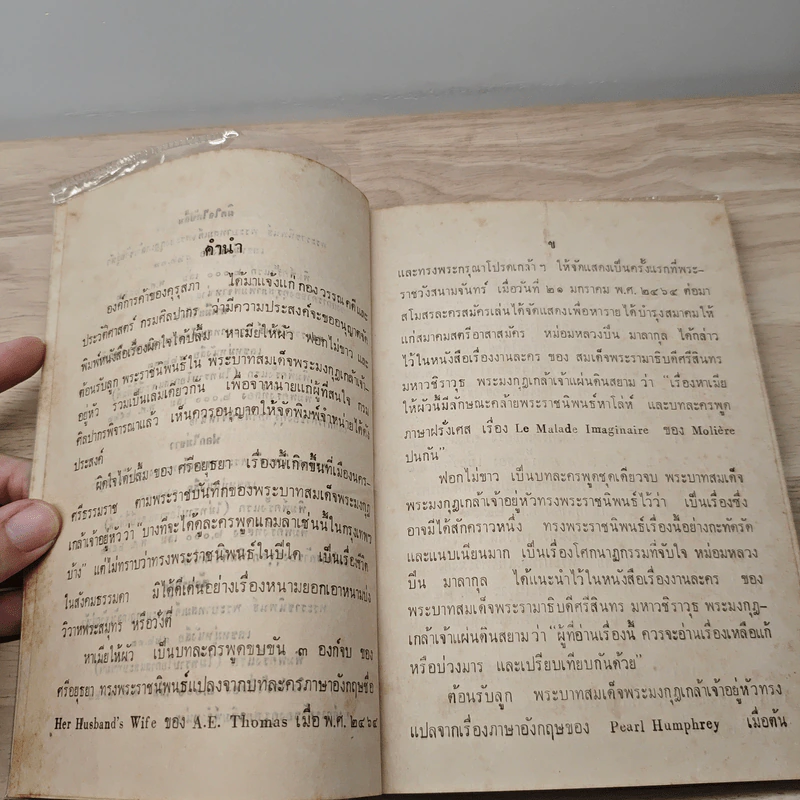 คำนำ
องค์การค้าของคุรุสภา ได้มาแจ้งแก่ กอง วรรณคดีและ
ประวัติศาสตร์ กรมศิลปากร ว่ามีความประสงค์จะขออนุญาตจัด
พิมพ์หนังสือเรื่องผิดใจได้ปลื้ม หาเมียให้ผัว ฟอกไม่ขาว และ
ต้อนรับลูก พระราชนิพนธ์ใน พระบาทสมเด็จพระมงกุฎเกล้าเจ้า-
อยู่หัว รวมเป็นเล่มเดียวกัน เพื่อจำหน่ายแก่ผู้ที่สนใจ กรม
ศิลปากรพิจารณาแล้ว เห็นควรอนุญาตให้จัดพิมพ์จำหน่ายได้ดัง
ประสงค์
ผิดใจได้ปลื้ม ของ ศรีอยุธยา เรื่องนี้เกิดขึ้นที่เมืองนคร-
ศรีธรรมราช ตามพระราชบันทึกของพระบาทสมเด็จพระมงกุฎ
เกล้าเจ้าอยู่หัว ว่า "บางที่จะได้ดูละครพูดแกมลำเช่นนี้ในกรุงเทพฯ
บ้าง" แต่ไม่ทราบว่าทรงพระราชนิพนธ์ในปีใด เป็นเรื่องชีวิต
ในสังคมธรรมดา มิได้ดีเด่นอย่างเรื่องหนามยอกเอาหนามบ่ง
วิวาหพระสมุทร หรือวั่งตี่
หาเมียให้ผัว เป็นบทละครพูดขบขัน ๓ องก์จบ ของ
ศรีอยุธยา ทรงพระราชนิพนธ์แปลงจากบทละครภาษาอังกฤษชื่อ
Her Husband's Wife ของ A.E. Thomas เมื่อ พ.ศ. ๒๔๖๔
ข
และทรงพระกรุณาโปรดเกล้า ฯ ให้จัดแสดงเป็นครั้งแรกที่พระ-
ราชวังสนามจันทร์ เมื่อวันที่ ๒๑ มกราคม พ.ศ. ๒๔๖๔ ต่อมา
สโมสรละครสมัครเล่นได้จัดแสดงเพื่อหารายได้บำรุงสมาคมให้
แก่สมาคมสตรีอาสาสมัคร หม่อมหลวงปิ่น มาลากุล ได้กล่าว
ไว้ในหนังสือเรื่องงานละคร ของ สมเด็จพระรามาธิบดีศรีสินทร
มหาวชิราวุธ พระมงกุฎเกล้าเจ้าแผ่นดินสยาม ว่า "เรื่องหาเมีย
ให้ผัวนี้มีลักษณะคล้ายพระราชนิพนธ์หาโล่ห์ และบทละครพูด
ภาษาฝรั่งเศส เรื่อง Le Malade Imaginaire ของ Molière
ปนกัน"
ฟอกไม่ขาว เป็นบทละครพูดชุดเดียวจบ พระบาทสมเด็จ
พระมงกุฎเกล้าเจ้าอยู่หัวทรงพระราชนิพนธ์ไว้ว่า เป็นเรื่องซึ่ง
อาจมีได้สักคราวหนึ่ง ทรงพระราชนิพนธ์เรื่องนี้อย่างกะทัดรัด
และแนบเนียนมาก เป็นเรื่องโศกนาฏกรรมที่จับใจ หม่อมหลวง
ปิ่น มาลากุล ได้แนะนำไว้ในหนังสือเรื่องงานละคร ของ
พระบาทสมเด็จพระรามาธิบดีศรีสินทร มหาวชิราวุธ พระมงกุฎ-
เกล้าเจ้าแผ่นดินสยาม ว่า "ผู้ที่อ่านเรื่องนี้ ควรจะอ่านเรื่องเหลือแก้
หรือบ่วงมาร และเปรียบเทียบกันด้วย"
ต้อนรับลูก พระบาทสมเด็จพระมงกุฎเกล้าเจ้าอยู่หัวทรง
แปลจากเรื่องภาษาอังกฤษของ Pearl Humphrey เมื่อต้น